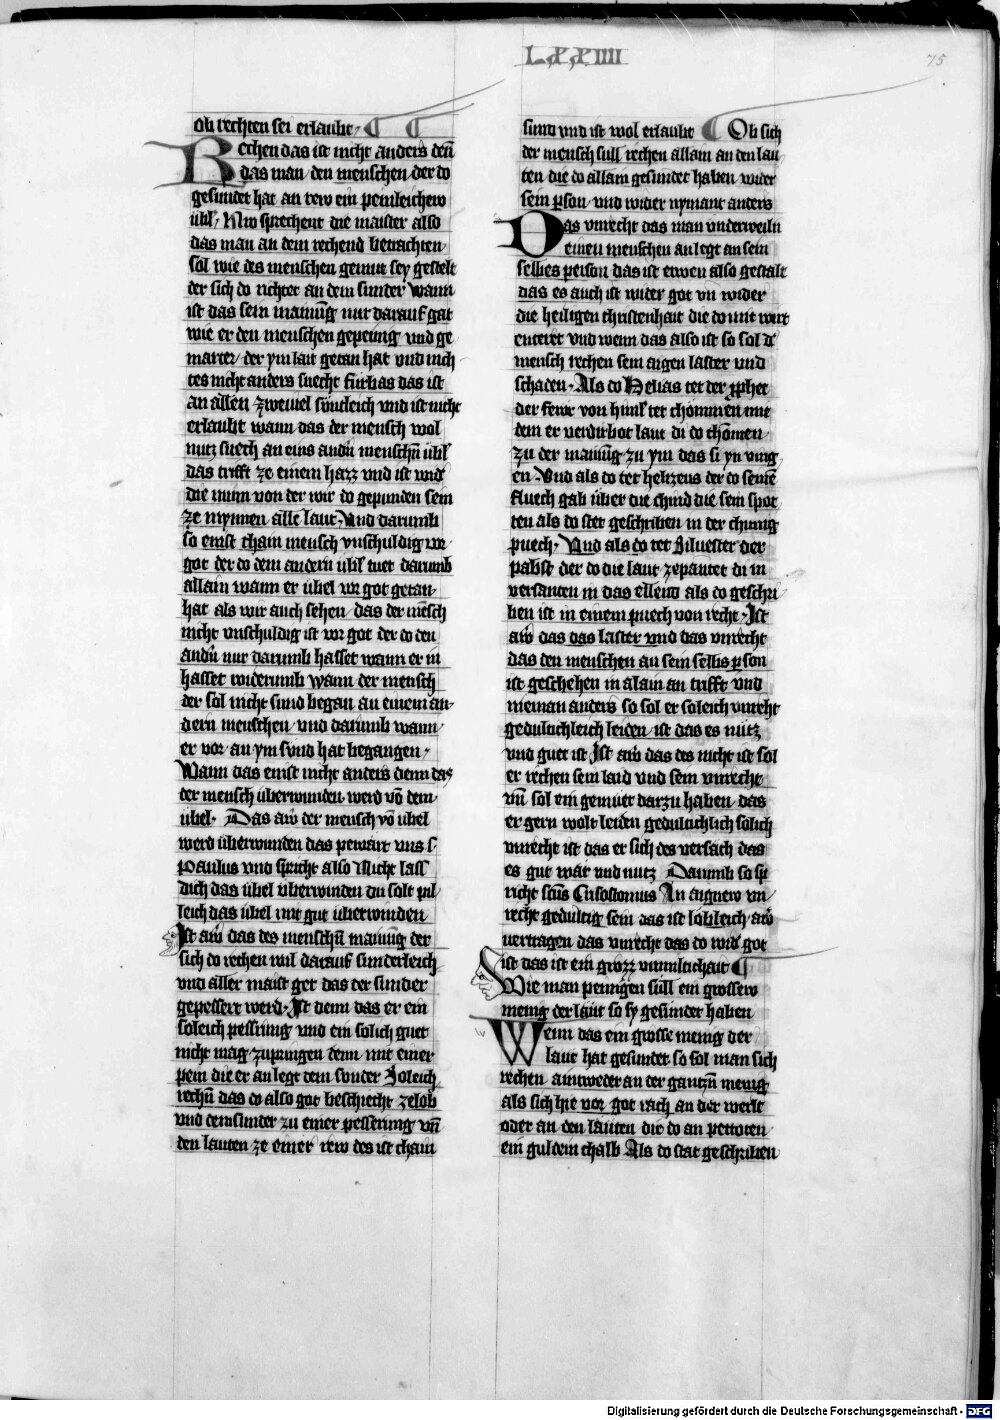 LXXIIII
75
ob rechten sei erlaubt ¶ ¶
Rechen das ist nicht anders den̄
das man den menschen der do
gesundet hat an rew ein peinleichew
übl Nw sprechent die maister also
das man an dem rechend betrachten
sol wie des menschen gemut sey gestelt
der sich do richtet an dem sunder Wann
ist das sein mainūg nur darauf gat
wie er den menschen gepeinig vnd ge
marter der ym lait getan hat vnd nich
tes nicht anders suecht fürbas das ist
an allen zweiuel sündleich vnd ist nicht
erlaubt wann das der mensch wol
nutz suech an eins andn̄ menschn̄ übl
das trifft ze einem hazz vnd ist wider
die minn von der wir do gepunden sein
ze mynnen alle laut Vnd darumb
so enist chain mensch vnschuldig vor
got der do dem andern übl tuet darumb
allain wann er übel vor got getan
hat als wir auch sehen das der mēsch
nicht vnschuldig ist vor got der do den
andn̄ nur darumb hasset wann er in
hasset widerumb Wann der mensch
der sol nicht sund began an einem an
dern menschen vnd darumb wann
er vor an ym sund hat begangen
Wann das enist nicht anders denn das
der mensch überwunden werd vō dem
übel Das aw̄ der mensch vō übel
werd überwunden das pewart vns s
paulus vnd spricht also Nicht lass
dich das übel vberwinden du solt pil
leich das übel mit gut überwinden
Ist aw̄ das des menschn̄ mainūg der
sich do rechen wil darauf sunderleich
vnd aller maist get das der sunder
gepessert werd Ist denn das er ein
soleich pessrung vnd ein solich guet
nicht mag zupringen denn mit einer
pein die er an legt dem sunder Soleich
rechn̄ das do also got beschiecht zelob
vnd dem sunder zu einer pesserung vn̄
den lauten ze einer rew des ist chain
sund vnd ist wol erlaubt ¶ Ob sich
der mensch sull rechen allain an den lau
ten die do allain gesundet haben wider
sein pson vnd wider nymant anders
Das vnrecht das man vnderweiln
einen menschen an legt an sein
selbes person das ist etwen also gestalt
das es auch ist wider got vn̄ wider
die heiligen christenhait die do mit wirt
enteret vnd wenn das also ist so sol d
mensch rechen sein aigen laster vnd
schaden Als do Helias tet der pphet
der fewr von himl tet chommen mit
dem er verdirbot laut di do chomen
zu der mainūg zu ym das si yn ving
en Vnd als do tet helizeus der do seinē
fluech gab über die chind die sein spot
ten als do stet geschriben in der chunig
puech Vnd als do tet Siluester der
pabst der do die laut zepantet di in
versanten in das ellend als do geschri
ben ist in einem puech von recht Ist
aw̄ das das laster vnd das vnrecht
das den menschen an sein selbs pson
ist geschehen in alain an trifft vnd
nieman anders so sol er soleich vnrecht
gedultichleich leiden ist das es nutz
vnd guet ist Ist aw̄ das des nicht ist sol
er rechen sein laid vnd sein vnrecht
vn̄ sol ein gemüet darzu haben das
er gern wolt leiden gedultichlich solich
vnrecht ist das er sich des versach das
es gut wär vnd nutz Darumb so sp
richt scūs Crisostomus An aignew vn
recht gedultig sein das ist lobleich aw̄
vertragen das vnrecht das do wid got
ist das ist ein grozz vnmilichait ¶
Wie man peinigen süll ein grossew
menig der läut so sy gesundet haben
Wenn das ein grosse menig der
laut hat gesundet so sol man sich
rechen aintweder an der gantzn̄ menig
als sich hie vor got rach an der werlt
oder an den lauten die do an pettoten
ein guldein chalb Als do stat geschriben
Digitalisierung gefördert durch die Deutsche Forschungsgemeinschaft - DFG